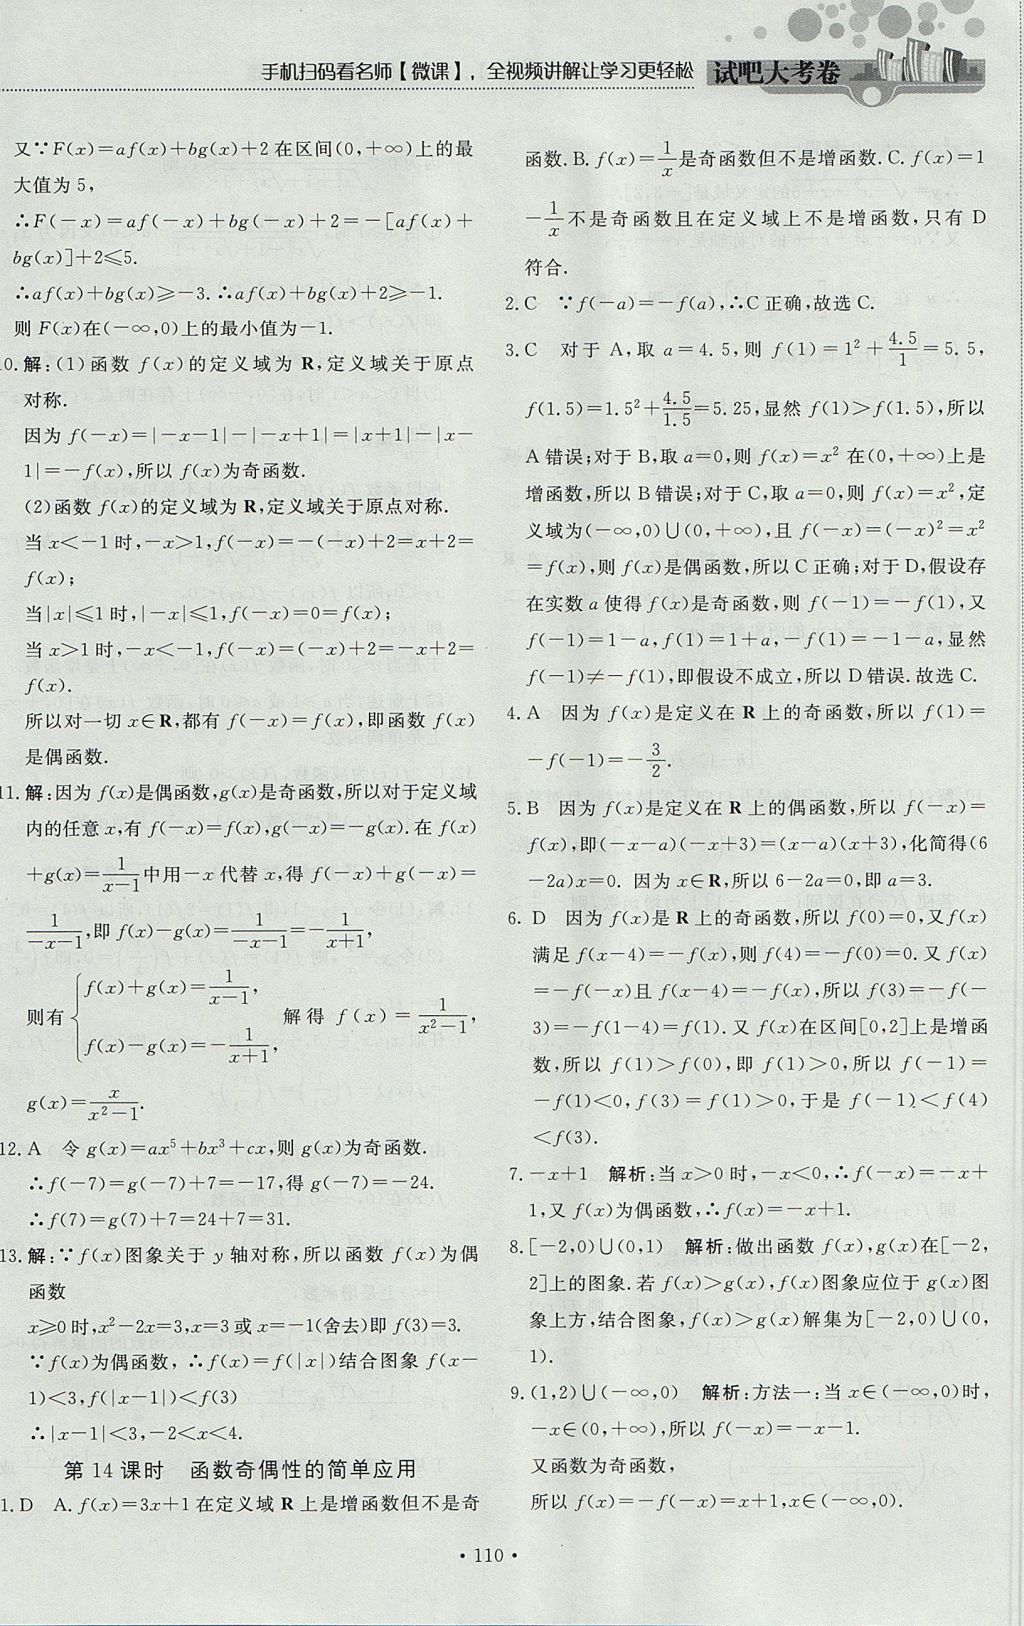 手机扫码看名师【微课】,全视频讲解让学习更轻松 试吧大考卷
又∵F(x)=af(x)+bg(x)+2在区间(0,+∞)上的最
大值为5,
∴F(-x)=af(-x)+bg(-x)+2=-[af(x)+
bg(x)]+2≤5.
∴af(x)+bg(x)≥-3.∴af(x)+bg(x)+2≥-1.
则F(x)在(-∞,0)上的最小值为-1.
10.解:(1)函数f(x)的定义域为R,定义域关于原点
对称.
因为f(-x)=|-x-1|-|-x+1|=|x+1|-|x-
1|=-f(x),所以f(x)为奇函数.
(2)函数f(x)的定义域为R,定义域关于原点对称.
当x<-1时,-x>1,f(-x)=-(-x)+2=x+2=
f(x);
当|x|≤1时,|-x|≤1,f(-x)=0=f(x);
当x>1时,-x<-1,f(-x)=(-x)+2=-x+2=
f(x).
所以对一切x∈R,都有f(-x)=f(x),即函数f(x)
是偶函数.
11.解:因为f(x)是偶函数,g(x)是奇函数,所以对于定义域
内的任意x,有f(-x)=f(x),g(-x)=-g(x).在f(x)
+g(x)=1/(x-1)中用-x代替x,得f(-x)+g(-x)=
1/(-x-1),即f(x)-g(x)=1/(-x-1)=-1/(x+1),
则有{f(x)+g(x)=1/(x-1), f(x)-g(x)=-1/(x+1), 解得f(x)=1/(x²-1),
g(x)=x/(x²-1).
12.A 令g(x)=ax⁵+bx³+cx,则g(x)为奇函数.
∴f(-7)=g(-7)+7=-17,得g(-7)=-24.
∴f(7)=g(7)+7=24+7=31.
13.解:∵f(x)图象关于y轴对称,所以函数f(x)为偶
函数
x≥0时,x²-2x=3,x=3或x=-1(舍去)即f(3)=3.
∵f(x)为偶函数,∴f(x)=f(|x|)结合图象f(x-
1)<3,f(|x-1|)<f(3)
∴|x-1|<3,-2<x<4.
第14课时 函数奇偶性的简单应用
1.D A.f(x)=3x+1在定义域R上是增函数但不是奇
函数.B.f(x)=1/x是奇函数但不是增函数.C.f(x)=1
-1/x不是奇函数且在定义域上不是增函数,只有D
符合.
2.C ∵f(-a)=-f(a),∴C正确,故选C.
3.C 对于A,取a=4.5,则f(1)=1²+4.5/1=5.5,
f(1.5)=1.5²+4.5/1.5=5.25,显然f(1)>f(1.5),所以
A错误;对于B,取a=0,则f(x)=x²在(0,+∞)上是
增函数,所以B错误;对于C,取a=0,则f(x)=x²,定
义域为(-∞,0)∪(0,+∞),且f(-x)=(-x)²=x²
=f(x),则f(x)是偶函数,所以C正确;对于D,假设存
在实数a使得f(x)是奇函数,则f(-1)=-f(1),又
f(-1)=1-a,f(1)=1+a,-f(1)=-1-a,显然
f(-1)≠-f(1),即假设不成立,所以D错误.故选C.
4.A 因为f(x)是定义在R上的奇函数,所以f(1)=
-f(-1)=-3/2.
5.B 因为f(x)是定义在R上的偶函数,所以f(-x)=
f(x),即(-x-a)(-x+3)=(x-a)(x+3),化简得(6
-2a)x=0.因为x∈R,所以6-2a=0,即a=3.
6.D 因为f(x)是R上的奇函数,所以f(0)=0,又f(x)
满足f(x-4)=-f(x),则f(4)=-f(0)=0.又f(x)
=-f(-x)且f(x-4)=-f(x),所以f(3)=-f(-
3)=-f(1-4)=f(1).又f(x)在区间[0,2]上是增函
数,所以f(1)>f(0),即f(1)>0,所以f(-1)=
-f(1)<0,f(3)=f(1)>0,于是f(-1)<f(4)
<f(3).
7.-x+1 解析:当x>0时,-x<0,∴f(-x)=-x+
1,又f(x)为偶函数,∴f(x)=-x+1.
8.[-2,0)∪(0,1) 解析:做出函数f(x),g(x)在[-2,
2]上的图象.若f(x)>g(x),f(x)图象应位于g(x)图
象上方,结合图象,f(x)>g(x)解集为[-2,0)∪(0,
1).
9.(1,2)∪(-∞,0) 解析:方法一:当x∈(-∞,0)时,
-x∈(0,+∞),所以f(-x)=-x-1.
又函数为奇函数,
所以f(x)=-f(-x)=x+1,x∈(-∞,0).
·110·